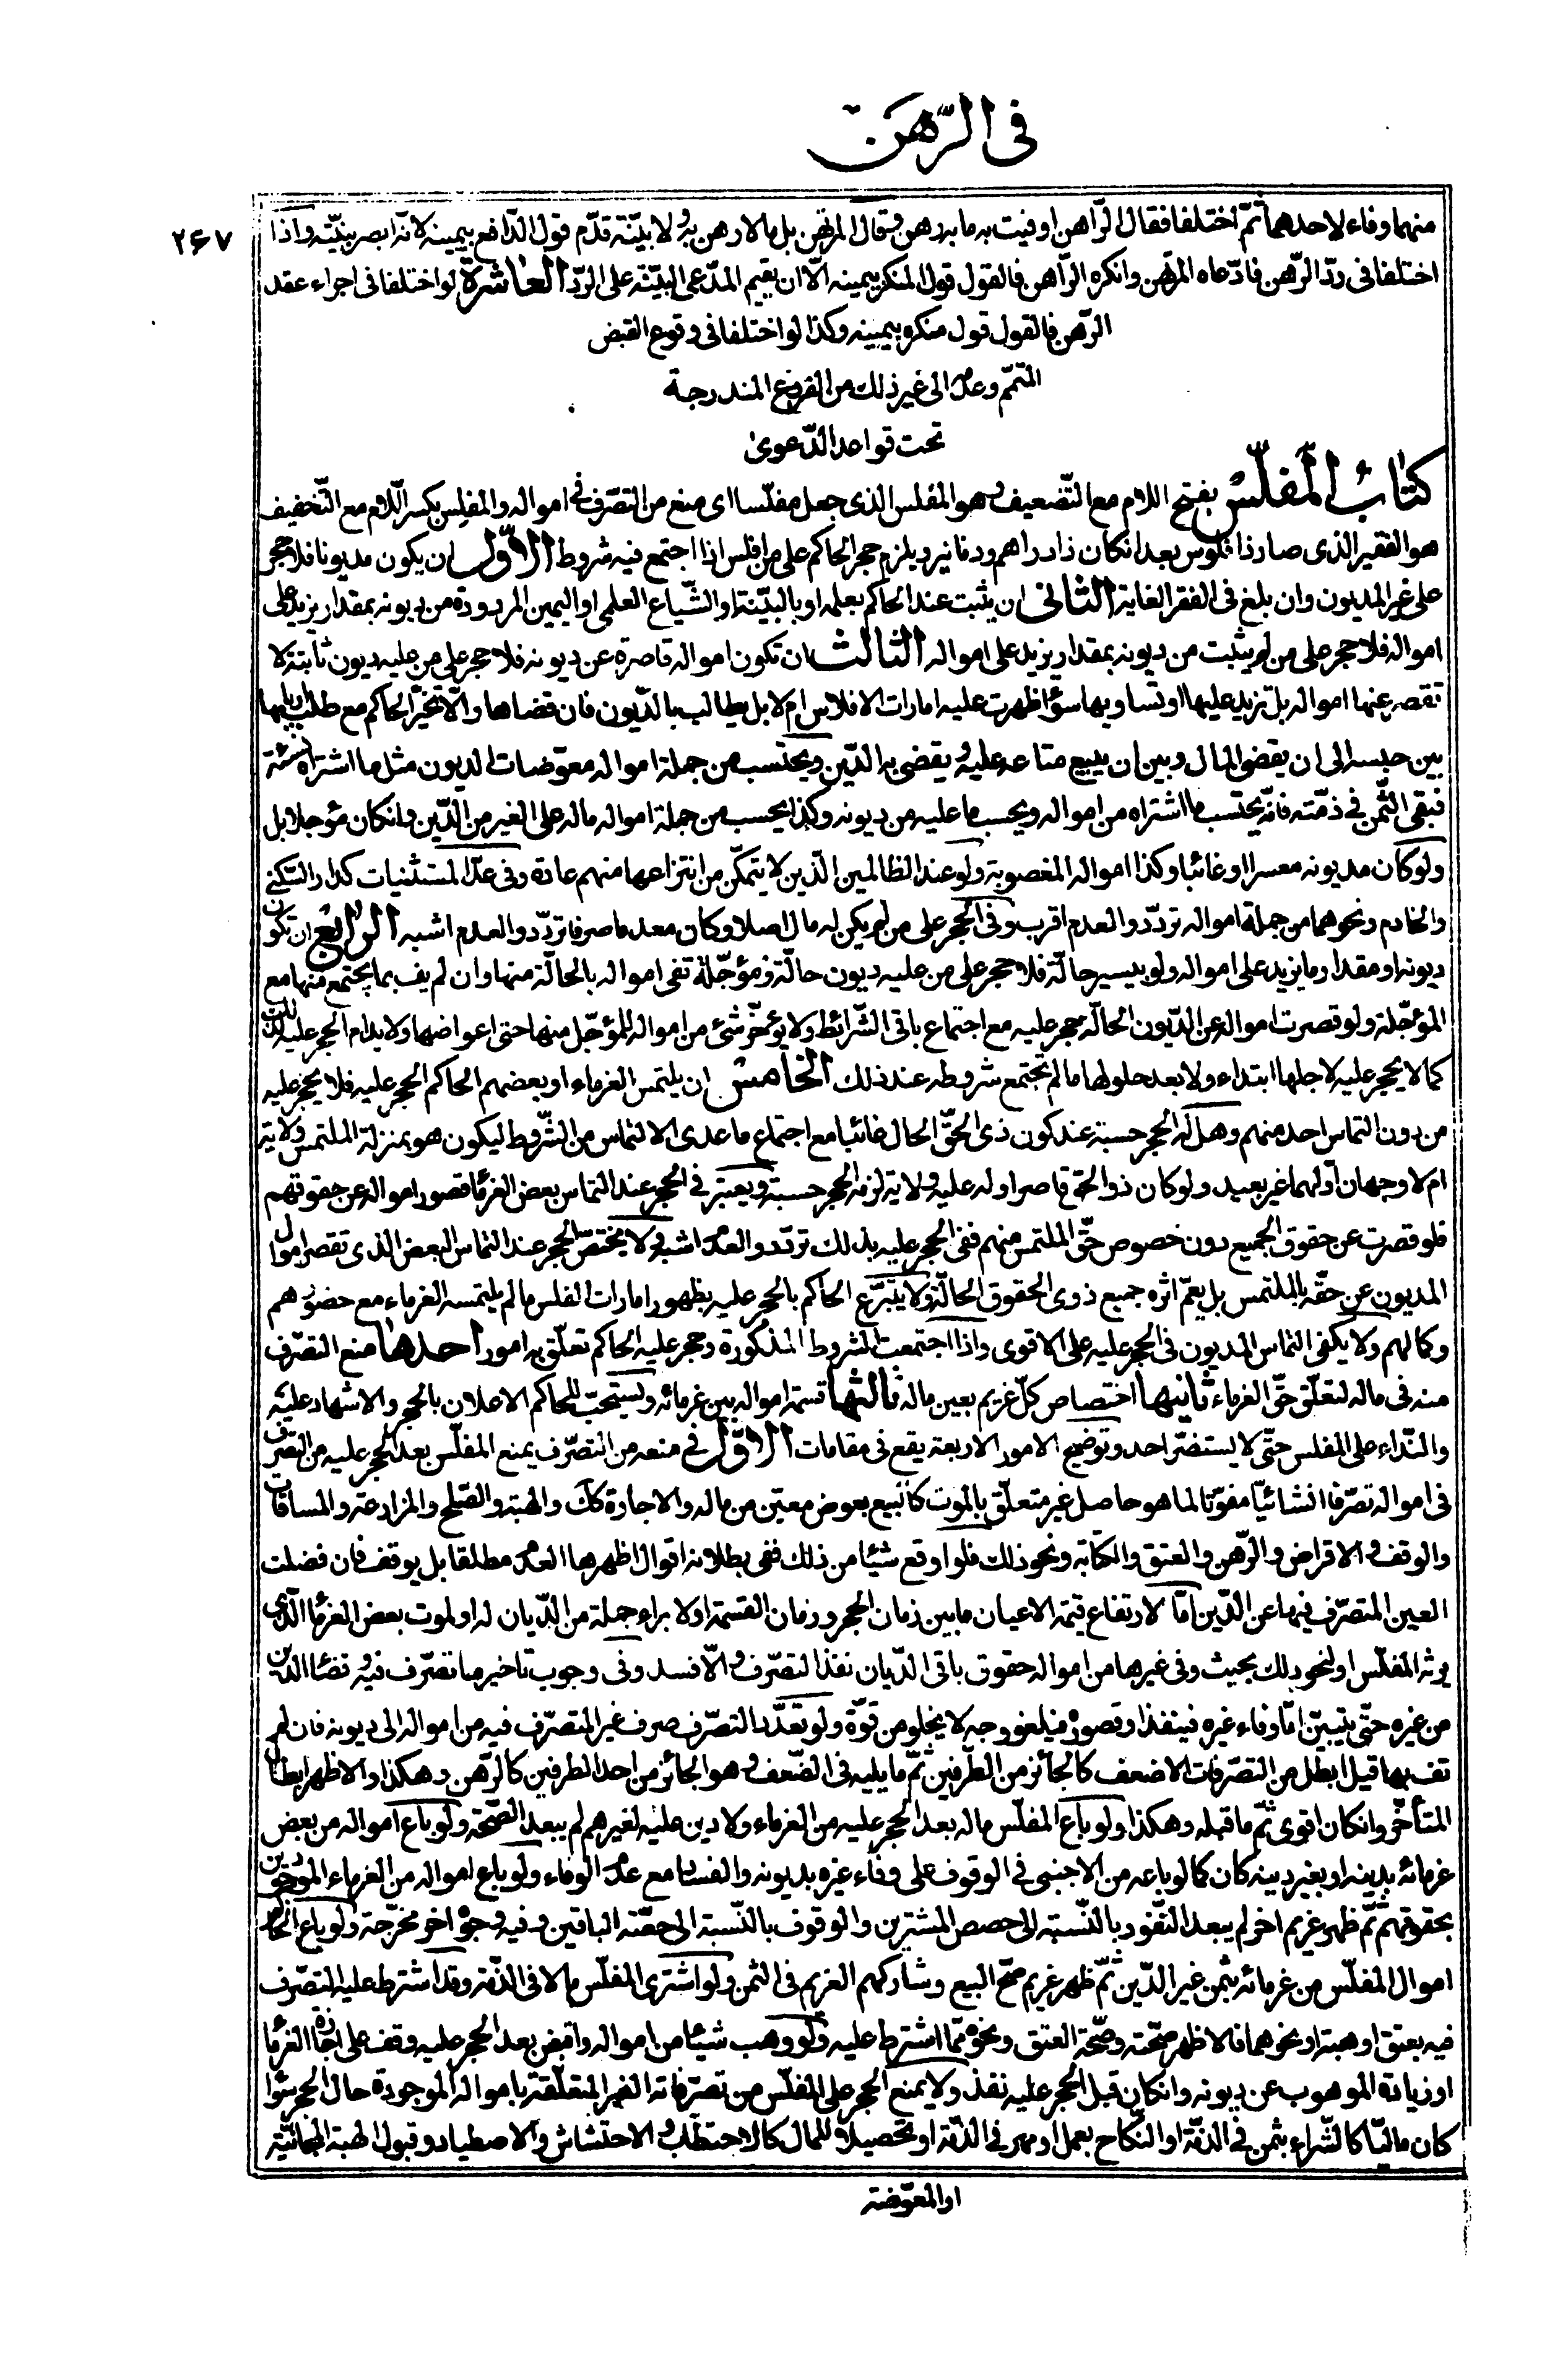 فى الرّهن
٢۶٧
منهما وفاء لاحدهما ثمّ اختلفا فقال الرّاهن اوفيت به ما به رهن وقال المرتهن بل ما لا رهن به ولا بيّنة قدّم قول الدّافع بيمينه لانّه ابصر بنيّته واذا
اختلفا فى ردّ الرّهن فادّعاه المرتهن وانكره الرّاهن فالقول قول المنكر بيمينه الّا ان يقيم المدّعى البيّنة على الردّ العاشرة لو اختلفا فى اجراء عقد
الرّهن فالقول قول منكره بيمينه وكذا لو اختلفا فى وقوع القبض
المتمّم وعدمه الى غير ذلك من الفروع المندرجة
تحت قواعد الدّعوى
كتاب المفلّس بفتح اللام مع التّضعيف وهو المفلس الذى جعل مفلّسا اى منع من التصرّف فى امواله والمفلس بكسر اللّام مع التّخفيف
هو الفقير الذى صار ذا فلوس بعد انكان ذا دراهم ودنانير ويلزم حجر الحاكم على من افلس اذا اجتمع فيه شروط الاوّل ان يكون مديونا فلا حجر
على غير المديون وان بلغ فى الفقر الغاية الثانى ان يثبت عند الحاكم بعلمه او بالبيّنة او الشّياع العلمى او اليمين المردودة من ديونه بمقدار يزيد على
امواله فلا حجر على من لم يثبت من ديونه بمقدار يزيد على امواله الثالث ان تكون امواله قاصرة عن ديونه فلا حجر على من عليه ديون ثابتة لا
تقصر عنها امواله بل تزيد عليها او تساويها سواء ظهرت عليه امارات الافلاس ام لا بل يطالب بالدّيون فان قضاها والّا تخيّر الحاكم مع طلب اربابها
بين حبسه الى ان يقضى المال وبين ان يبيع متاعه عليه ويقضى به الدّين ويحتسب من جملة امواله معوّضات الديون مثل ما اشتراه نسئة
فبقى الثّمن فى ذمّته فانّه يحتسب ما اشتراه من امواله ويحسب ما عليه من ديونه وكذا يحسب من جملة امواله ماله على الغير من الدّين وانكان مؤجلا بل
ولو كان مديونه معسرا او غائبا وكذا امواله المغصوبة ولو عند الظالمين الّذين لا يتمكّن من انتزاعها منهم عادة وفى عدّ المستثنيات كدار السّكنى
والخادم ونحوهما من جملة امواله تردّد والعدم اقرب وفى الحجر على من لم يكن له مال اصلا وكان معدما صرفا تردّد والعدم اشبه الرابع ان تكون
ديونه او مقدار ما يزيد على امواله ولو بيسير حالّة فلا حجر على من عليه ديون حالّة ومؤجّلة تفى امواله بالحالّة منها وان لم يف بما يجتمع منها مع
المؤجّلة ولو قصرت امواله عن الدّيون الحالّة حجر عليه مع اجتماع باقى الشّرائط ولا يؤخّر شئ من امواله للمؤجّل منها حتى اعواضها ولا يدام الحجر عليه لذلك
كما لا يحجر عليه لاجلها ابتداء ولا بعد حلولها ما لم تجتمع شروطه عند ذلك الخامس ان يلتمس الغرماء او بعضهم الحاكم الحجر عليه فلا يحجر عليه
من دون التماس احد منهم وهل له الحجر حسبة عند كون ذى الحقّ الحال غائبا مع اجتماع ما عدى الالتماس من الشّروط ليكون هو بمنزلة الملتمس ولاية
ام لا وجهان اوّلهما غير بعيد ولو كان ذو الحقّ قاصرا وله عليه ولاية لزمه الحجر حسبة ويعتبر فى الحجر عند التماس بعض الغرماء قصور امواله عن حقوقهم
فلو قصرت عن حقوق الجميع دون خصوص حقّ الملتمس منهم ففى الحجر عليه بذلك تردّد والعدم اشبه ولا يختصّ الحجر عند التماس البعض الذى تقصر اموال
المديون عن حقّه بالملتمس بل يعمّ اثره جميع ذوى الحقوق الحالّة ولا يتبرّع الحاكم بالحجر عليه بظهور امارات الفلس ما لم يلتمسه الغرماء مع حضورهم
وكمالهم ولا يكفى التماس المديون فى الحجر عليه على الاقوى واذا اجتمعت الشروط المذكورة وحجر عليه الحاكم تعلّق به امور احدها منع التصرّف
منه فى ماله لتعلّق حقّ الغرماء ثانيها اختصاص كلّ غريم بعين ماله ثالثها قسمة امواله بين غرمائه ويستحبّ للحاكم الاعلان بالحجر والاشهاد عليه
والنّداء على المفلس حتّى لا يستضرّ احد وتوضيح الامور الاربعة يقع فى مقامات الاوّل فى منعه من التصرّف يمنع المفلّس بعد الحجر عليه من التصرّف
فى امواله تصرّفا انشائيّا مفوّتا لما هو حاصل غير متعلّق بالموت كالبيع بعوض معيّن من ماله والاجارة كك والهبة والصّلح والمزارعة والمساقات
والوقف والاقراض والرّهن والعتق والكتابة ونحو ذلك فلو اوقع شيئا من ذلك ففى بطلانه اقوال اظهرها العدم مطلقا بل يوقف فان فضلت
العين المتصرّف فيها عن الدّين امّا لارتفاع قيمة الاعيان ما بين زمان الحجر وزمان القسمة او لابراء جملة من الدّيان له او لموت بعض الغرماء الّذى
يرثه المفلّس او لنحو ذلك بحيث وفى غيرها من امواله حقوق باقى الدّيان نفذ التصرّف والّا فسد وفى وجوب تاخير ما تصرّف فيه وقضاء الدّين
من غيره حتّى يتبيّن امّا وفاء غيره فينفذ او قصوره فيلغو وجه لا يخلو من قوّة ولو تعدّد التصرّف صرف غير المتصرّف فيه من امواله الى ديونه فان لم
تف بها قيل ابطل من التصرّفات الاضعف كالجائز من الطّرفين ثمّ ما يليه فى الضّعف وهو الجائز من احد الطرفين كالرّهن وهكذا والاظهر ابطال
المتأخّر وانكان اقوى ثمّ ما قبله وهكذا ولو باع المفلّس ماله بعد الحجر عليه من الغرماء ولا دين عليه لغيرهم لم يبعد الصّحّة ولو باع امواله من بعض
غرمائه بدينه او بغير دينه كان كما لو باعه من الاجنبى فى الوقوف على وفاء غيره بديونه والفساد مع عدم الوفاء ولو باع امواله من الغرماء الموجودين
بحقوقهم ثمّ ظهر غريم اخر لم يبعد النّفوذ بالنّسبة الى حصص المشترين والوقوف بالنّسبة الى حصّته الباقين وفيه وجوه اخر مخرّجة ولو باع الحاكم
اموال المفلّس من غرمائه بثمن غير الدّين ثمّ ظهر غريم صحّ البيع وشاركهم الغريم فى الثمن ولو اشترى المفلّس مالا فى الذّمّة وقد اشترط عليه التصرّف
فيه بعتق او هبة او نحوهما فالاظهر صحّته وصحّة العتق ونحوه ممّا اشترط عليه ولو وهب شيئا من امواله واقبض بعد الحجر عليه وقف على اجازة الغرماء
او زيادة الموهوب عن ديونه وانكان قبل الحجر عليه نفذ ولا يمنع الحجر على المفلّس من تصرّفاته الغير المتعلّقة بامواله الموجودة حال الحجر سواء
كان ماليّا كالشّراء بثمن فى الذمّة او النّكاح بعمل او مهر فى الذمّة او تحصيلا للمال كالاحتطاب والاحتشاش والاصطياد وقبول الهبة المجانيّة
او المعوّضة